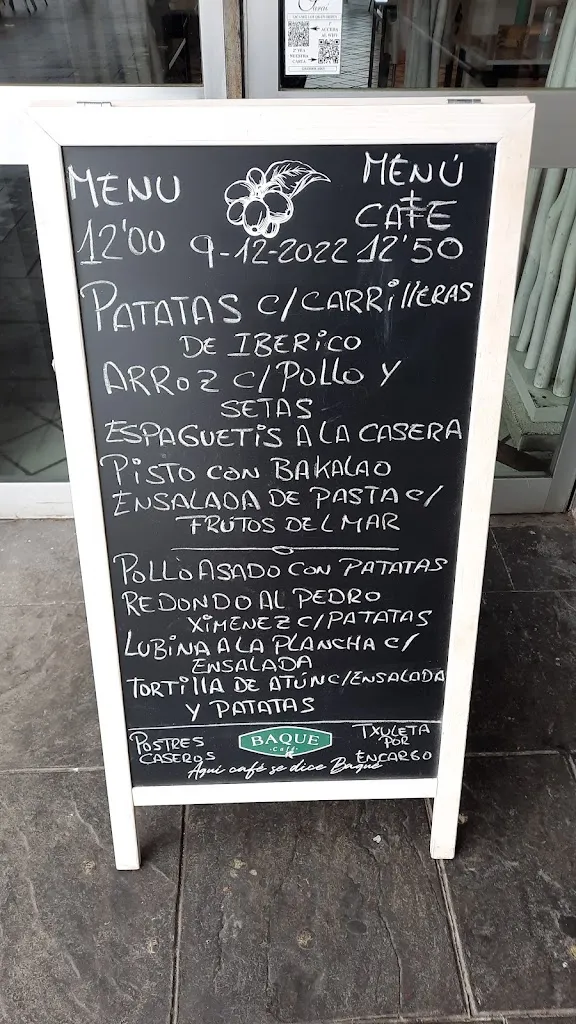 MENU
12'00
9-12-2022
MENÚ
+
CAFE
12'50
PATATAS C/CARRILLERAS
DE IBERICO
ARROZ C/POLLO Y
SETAS
ESPAGUETIS A LA CASERA
PISTO CON BAKALAO
ENSALADA DE PASTA C/
FRUTOS DEL MAR
POLLO ASADO CON PATATAS
REDONDO AL PEDRO
XIMENEZ C/PATATAS
LUBINA A LA PLANCHA C/
ENSALADA
TORTILLA DE ATÚN C/ENSALADA
Y PATATAS
POSTRES
CASEROS
BAQUE
·Café·
TXULETA
POR
ENCARGO
Aquí café se dice Baqué